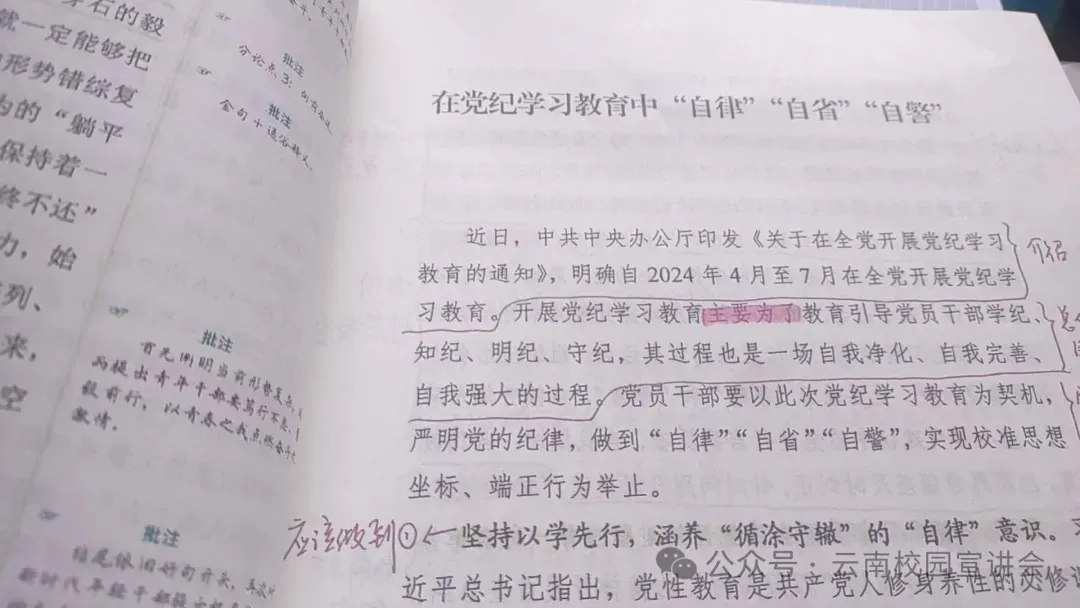 穿石的毅
就一定能够把
形势错综复
的“躺平
保持着一
终不还”
力，始
列、
来，
空
批注
分论点3：
批注
金句+通俗释义
批注
首先阐明当前形势复杂，
而提出青年干部要笃行不怠，
毅前行，以青春之我点燃奋斗
激情。
批注
结尾依旧好句开头，再次
新时代年轻干部
在党纪学习教育中“自律”“自省”“自警”
近日，中共中央办公厅印发《关于在全党开展党纪学习
教育的通知》，明确自 2024 年 4 月至 7 月在全党开展党纪学
习教育。开展党纪学习教育主要为了教育引导党员干部学纪、
知纪、明纪、守纪，其过程也是一场自我净化、自我完善、
自我强大的过程。党员干部要以此次党纪学习教育为契机，
严明党的纪律，做到“自律”“自省”“自警”，实现校准思想
坐标、端正行为举止。
介绍
应该做到①
坚持以学先行，涵养“循涂守辙”的“自律”意识。习
近平总书记指出，党性教育是共产党人修身养性的必修
公众号：云南校园宣讲会